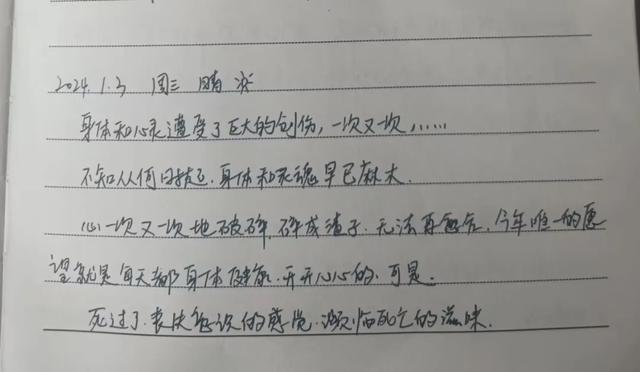 2024.1.3 周三 晴 冷
身体和心灵遭受了巨大的创伤，一次又一次，……
不知从何时起，身体和灵魂早已麻木．
心一次又一次地破碎，碎成渣子．无法再愈合．今年唯一的愿
望就是每天都身体健康，开开心心的．可是．
死过了．丧失意识的感觉．濒临死亡的滋味．